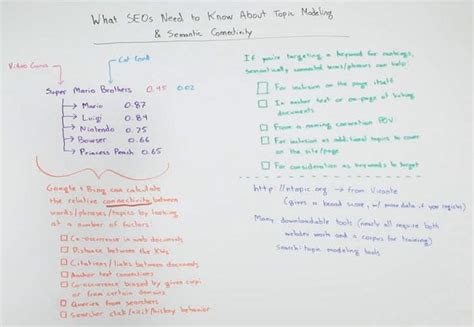 What SEOs Need to Know About Topic Modeling
& Semantic Connectivity
Video Game
Cat Food
Super Mario Brothers 0.95 0.02
Mario 0.87
Luigi 0.84
Nintendo 0.75
Bowser 0.66
Princess Peach 0.65
Google + Bing can calculate
the relative connectivity between
words/phrases/topics by looking
at a number of factors
Co-occurrence in web documents
Distance between the KWs
Citations/links between documents
Anchor text connections
Co-occurrence biased by given
or from certain domains
Queries from searchers
Searcher click/visit/history behavior
If you're targeting a keyword for rankings,
semantically connected terms/phrases can help:
For inclusion on the page itself
In anchor text or on-page at linking
documents
From a naming convention POV
For inclusion as additional topics to cover
on the site/page
For consideration as keywords to target
from Virante
(gives a broad score, w/ more data if you register)
Many downloadable tools (nearly all require both
webdev work and a corpus for training)
Search: topic modeling tools